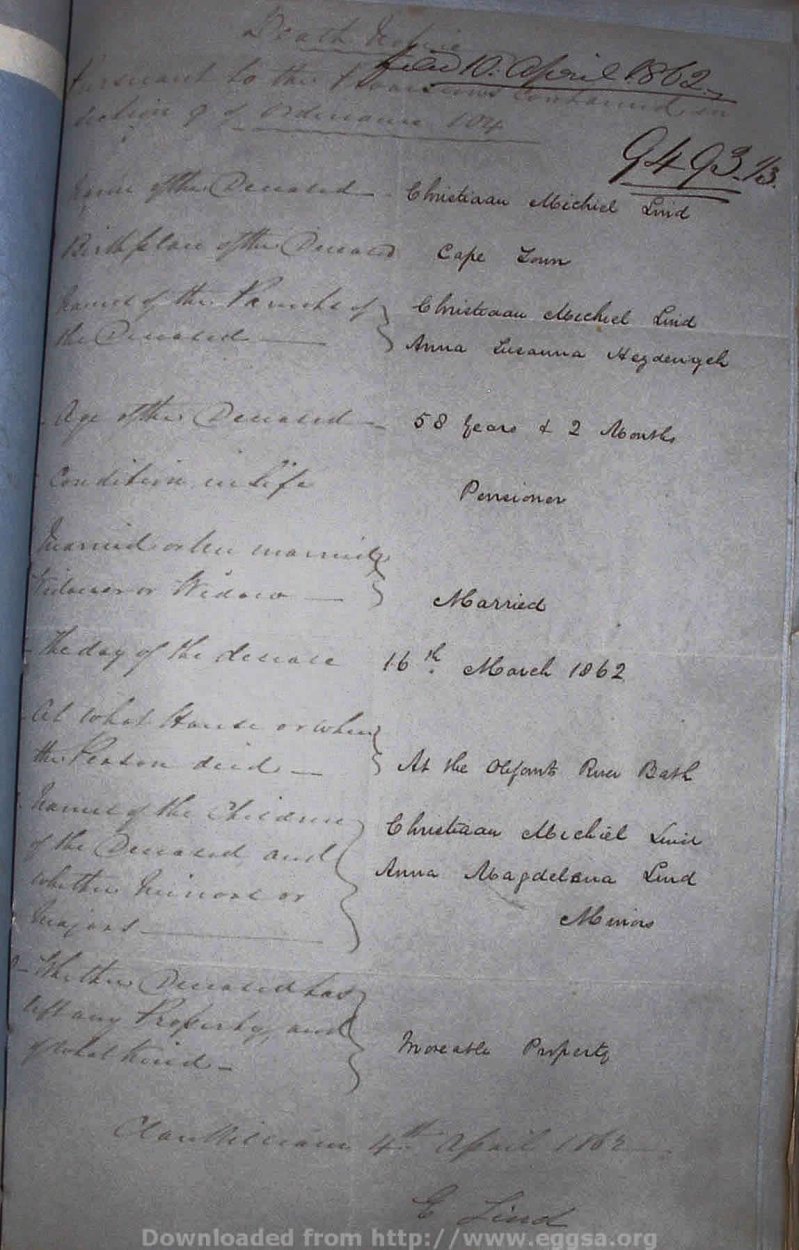 Death Notice
filed 10. April 1862
Pursuant to the Provisions Contained in
Section 9 of Ordinance 104
9493 1/3.
Name of the Deceased - Christiaan Michiel Lind
Birth place of the Deceased Cape Town
Names of the Parents of Christiaan Michiel Lind
the Deceased Anna Susanna
Age of the Deceased - 58 Years & 2 Months
Condition in Life Pensioner
Married or
Widower or Widow Married
The day of the decease 16th March 1862
At what House or where
the Person died At the Olifants River Bath
Names of the Children Christiaan Michiel Lind
of the Deceased and Anna Magdelena Lind
whether Minors or Minors
Majors
Whether Deceased has
left any Property, and Moveable Property
of what kind -
Clanwilliam 4th April 1862
Lind
Downloaded from http://www.eggsa.org